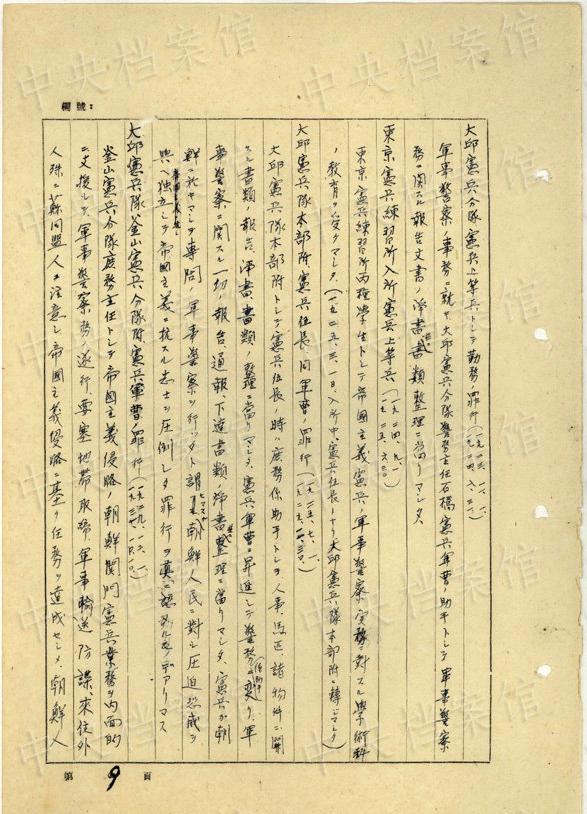 欄號:
大邱憲兵分隊憲兵上等兵トシテ勤務ノ罪行(一九二三、一一、一、一九二四、八、三一、)
軍事警察ノ事務ニ就キ大邱憲兵分隊警務主任石橋憲兵軍曹ノ助手トシテ軍事警察
務ニ関スル報告文書ノ淨書並ニ書類整理ニ当リマシタ
東京憲兵練習所入所憲兵上等兵(一九二四、九、一、一九二五、六、三〇)
東京憲兵練習所丙種学生トシテ帝國主義憲兵ノ軍事警察実務ニ対スル学術科
ノ教育ヲ受ケマシタ(一九二五、三、一日入所中憲兵伍長トナリ大邱憲兵隊本部附ニ轉ジマシタ)
大邱憲兵隊本部附憲兵伍長同軍曹ノ罪行(一九二五、七、一、一九二九、一二、三〇、)
大邱憲兵隊本部附トシテ憲兵伍長ノ時ハ庶務係助手トシテ人事、馬匹、諸物件ニ関
スル書類ノ報告、淨書書類ノ整理ニ当リマシタ、憲兵軍曹ニ昇進シテ警務(係助手)ニ変リ、軍
事警察ニ関スル一切ノ報告、通報、下達書類、淨書並ニ整理ニ当リマシタ、憲兵ガ朝
鮮ニ於キマシテ専問ノ軍事警察ヲ行フタト謂ヒマスガ朝鮮人民ニ對シ圧迫恐威ヲ
與ヘ独立シテ帝國主義ニ抗スル志士ヲ圧倒シタ罪行ヲ真ニ認メルモノデアリマス
大邱憲兵隊釜山憲兵分隊附憲兵軍曹ノ罪行
釜山憲兵分隊庶務主任トシテ帝國主義侵略ノ朝鮮関門憲兵業務ヲ内面的
ニ支援シテ軍事警察務ノ遂行、要塞地帯取締、軍事輸送防諜、來住外
人殊ニ蘇同盟人ニ注意シ帝國主義侵略ニ基ク任務ヲ達成セシメ、朝鮮人
第 9 頁